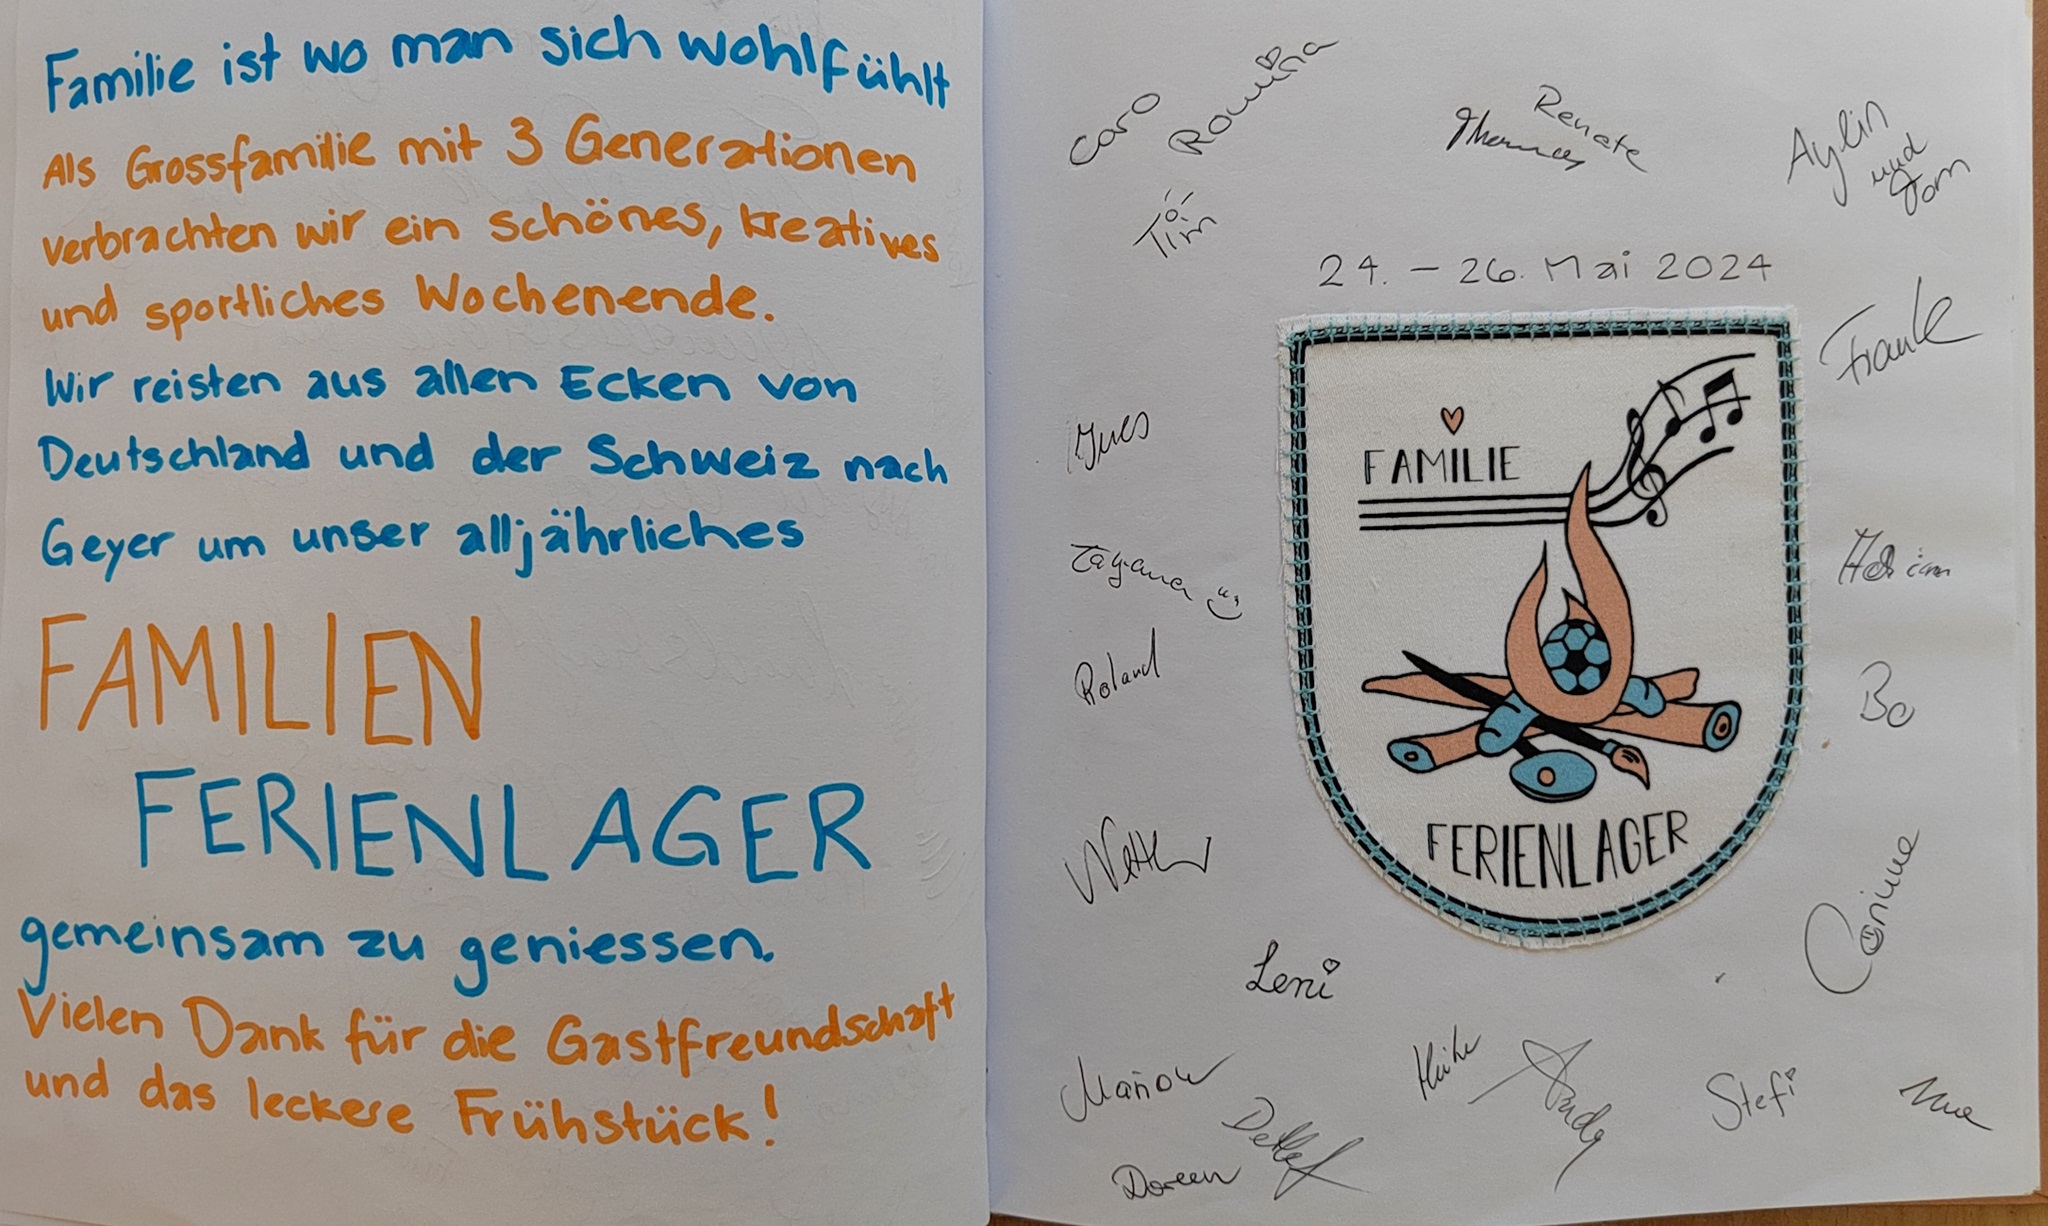 Familie ist wo man sich wohlfühlt
Als Grossfamilie mit 3 Generationen
verbrachten wir ein schönes, kreatives
und sportliches Wochenende.
Wir reisten aus allen Ecken von
Deutschland und der Schweiz nach
Geyer um unser alljährliches
FAMILIEN
FERIENLAGER
gemeinsam zu geniessen.
Vielen Dank für die Gastfreundschaft
und das leckere Frühstück!
Caro
Romina
Renate
Thomas
Aylin
und
Tom
Tim
24. - 26. Mai 2024
Frank
FAMILIE
Roland
Bo
FERIENLAGER
Corinne
Leni
Marion
Andy
Stefi
Detlef
Doreen